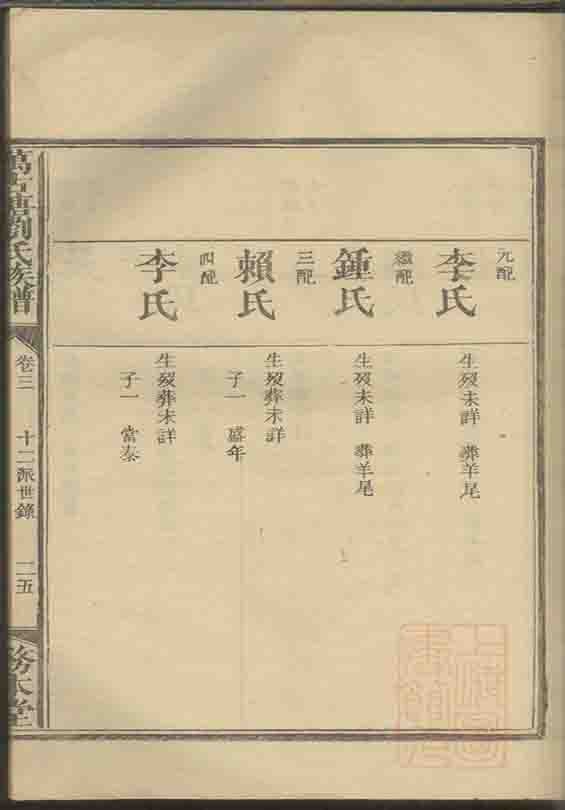 元配
李氏
生歿未詳 葬羊尾
繼配
鍾氏
生歿未詳 葬羊尾
三配
賴氏
生歿葬未詳
子一 盛年
四配
李氏
生歿葬未詳
子一 當泰
萬古塘劉氏族譜
卷三 十二派世錄 二五
務本堂